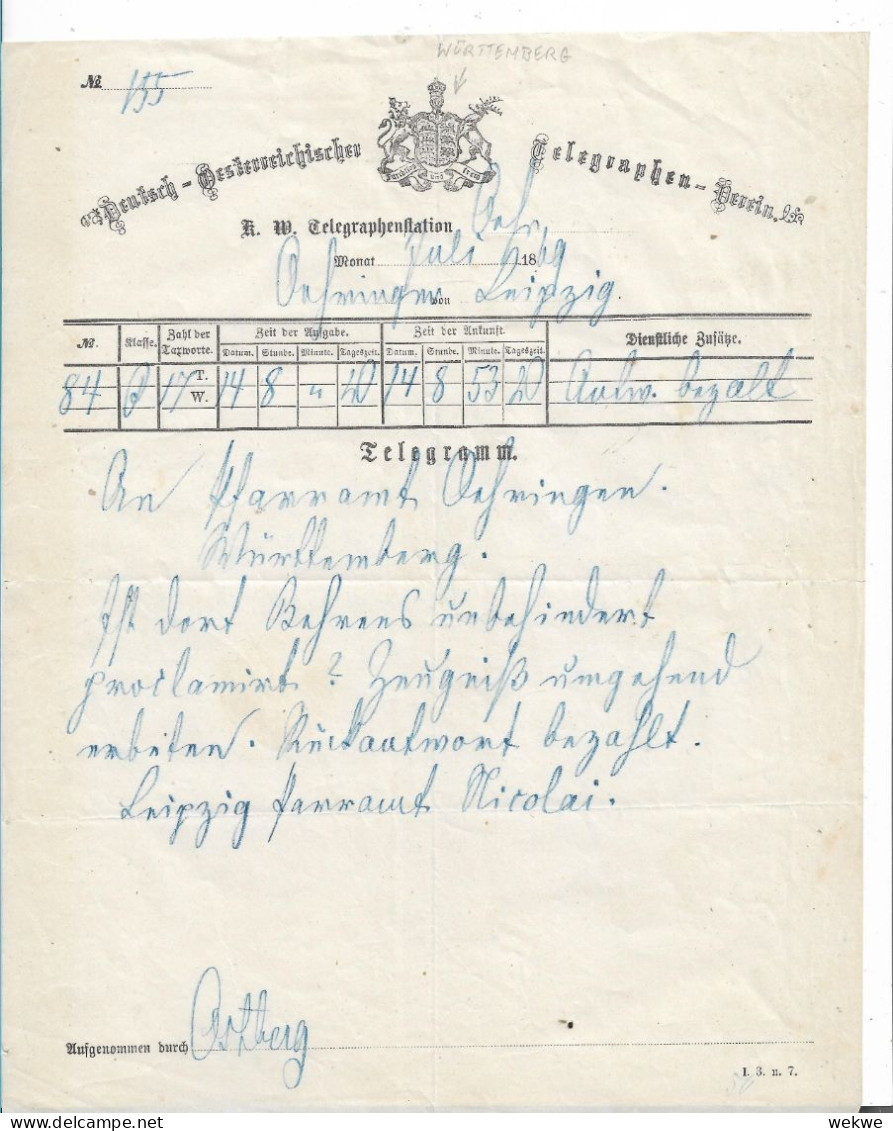 WÜRTTEMBERG
№ 155
Deutsch-Oesterreichischer Telegraphen-Verein.
furchtlos und trew
K. W. Telegraphenstation Oehr
Monat Juli 1869
Oehringen von Leipzig.
№. Klasse. Zahl der Taxworte. Zeit der Aufgabe. Zeit der Ankunft. Dienstliche Zusätze.
Datum. Stunde. Minute. Tageszeit. Datum. Stunde. Minute. Tageszeit.
84 B 17 T. W. 14 8 „ 14 8 53 Antw. bezalt
Telegramm.
An Pfarramt Oehringen.
Württemberg.
Ist dort Behrens unbehindert
proclamirt? Zeugniß umgehend
erbeten. Rückantwort bezahlt.
Leipzig Farramt Nicolai.
Aufgenommen durch Ostberg
I. 3. u. 7.
wekwe